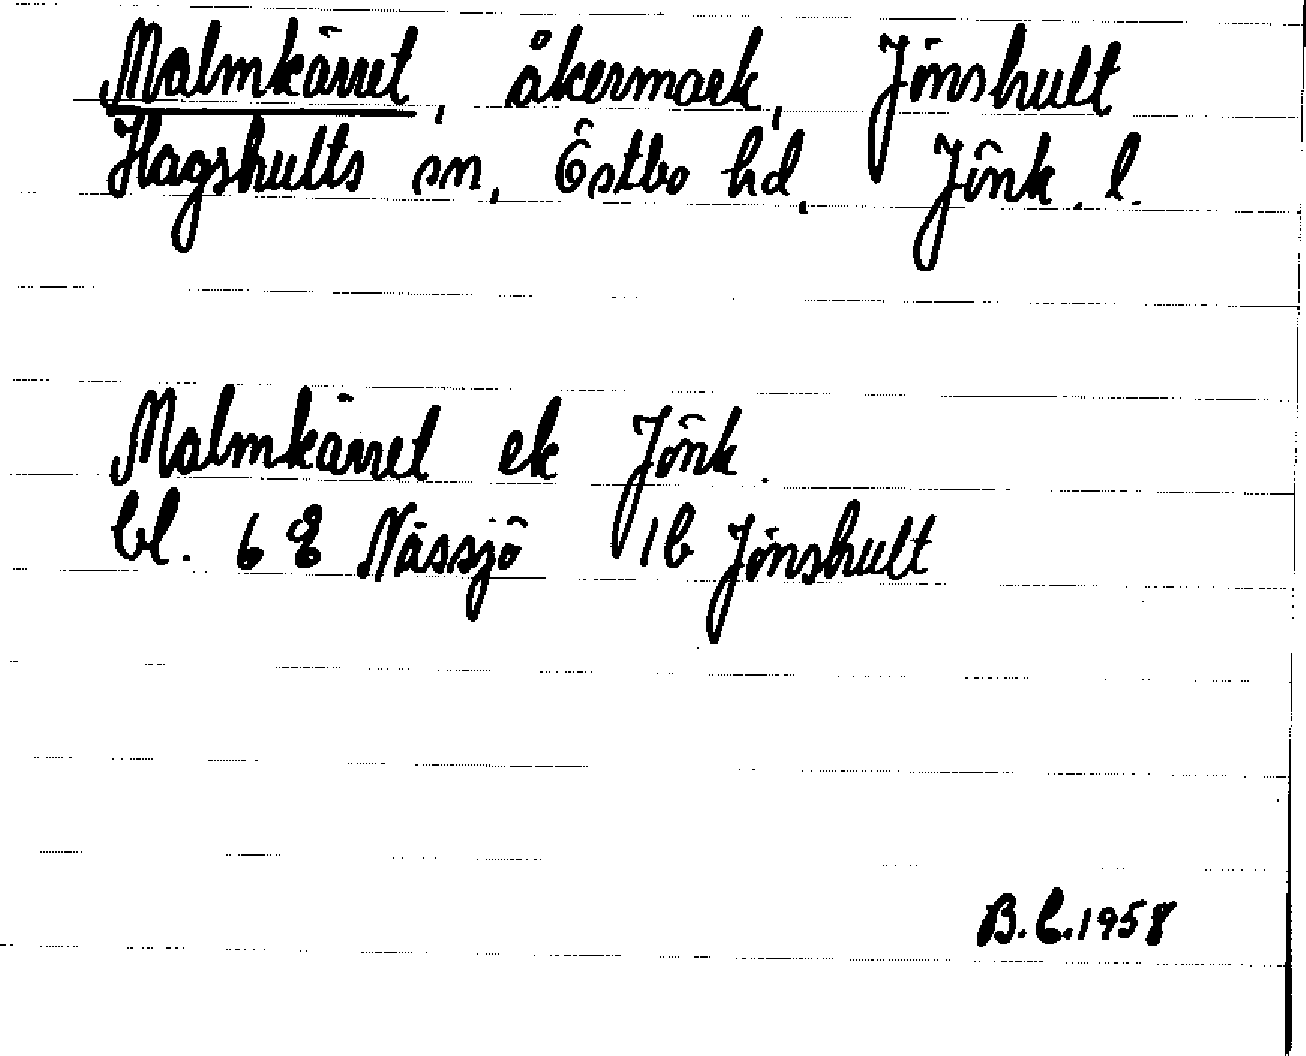 Malmkärret, åkermark, Jönshult
Hagshults sn, Östbo hd, Jönk. l.
Malmkärret ek Jönk.
bl. 6 E Nässjö 1b Jönshult
B.E.1958